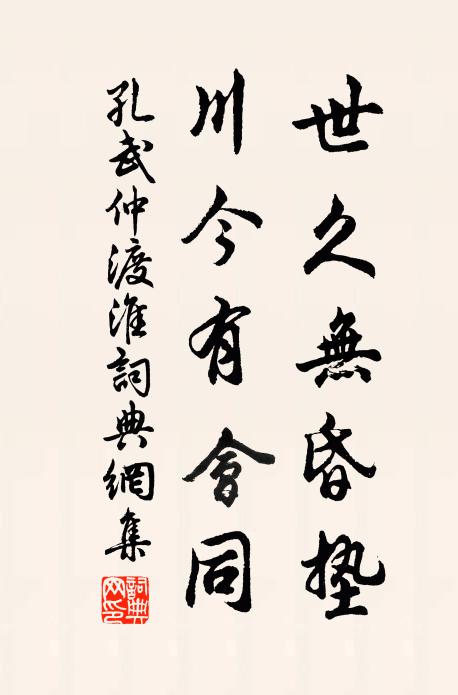 世久無昏墊
川今有會同
孔武仲渡淮詞典網集
詞典网印